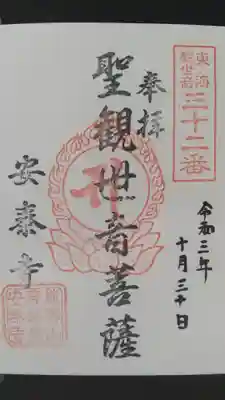 東海
聖観音
三十二番
奉拝
聖観世音菩薩
安泰寺
令和三年
十月三十日